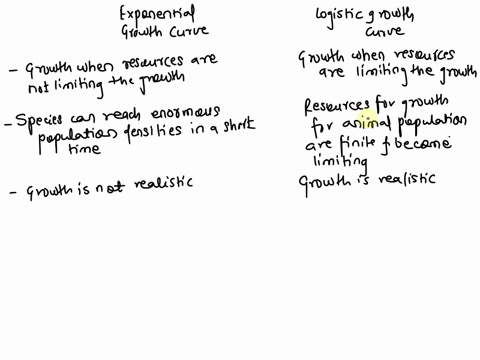 Exponential
Growth Curve
- Growth when resources are
not limiting the growth
- Species can reach enormous
population densities in a short
time
- Growth is not realistic
Logistic growth
Curve
Growth when resources
are limiting the growth
Resources for growth
for animal population
are finite & become
limiting
Growth is realistic